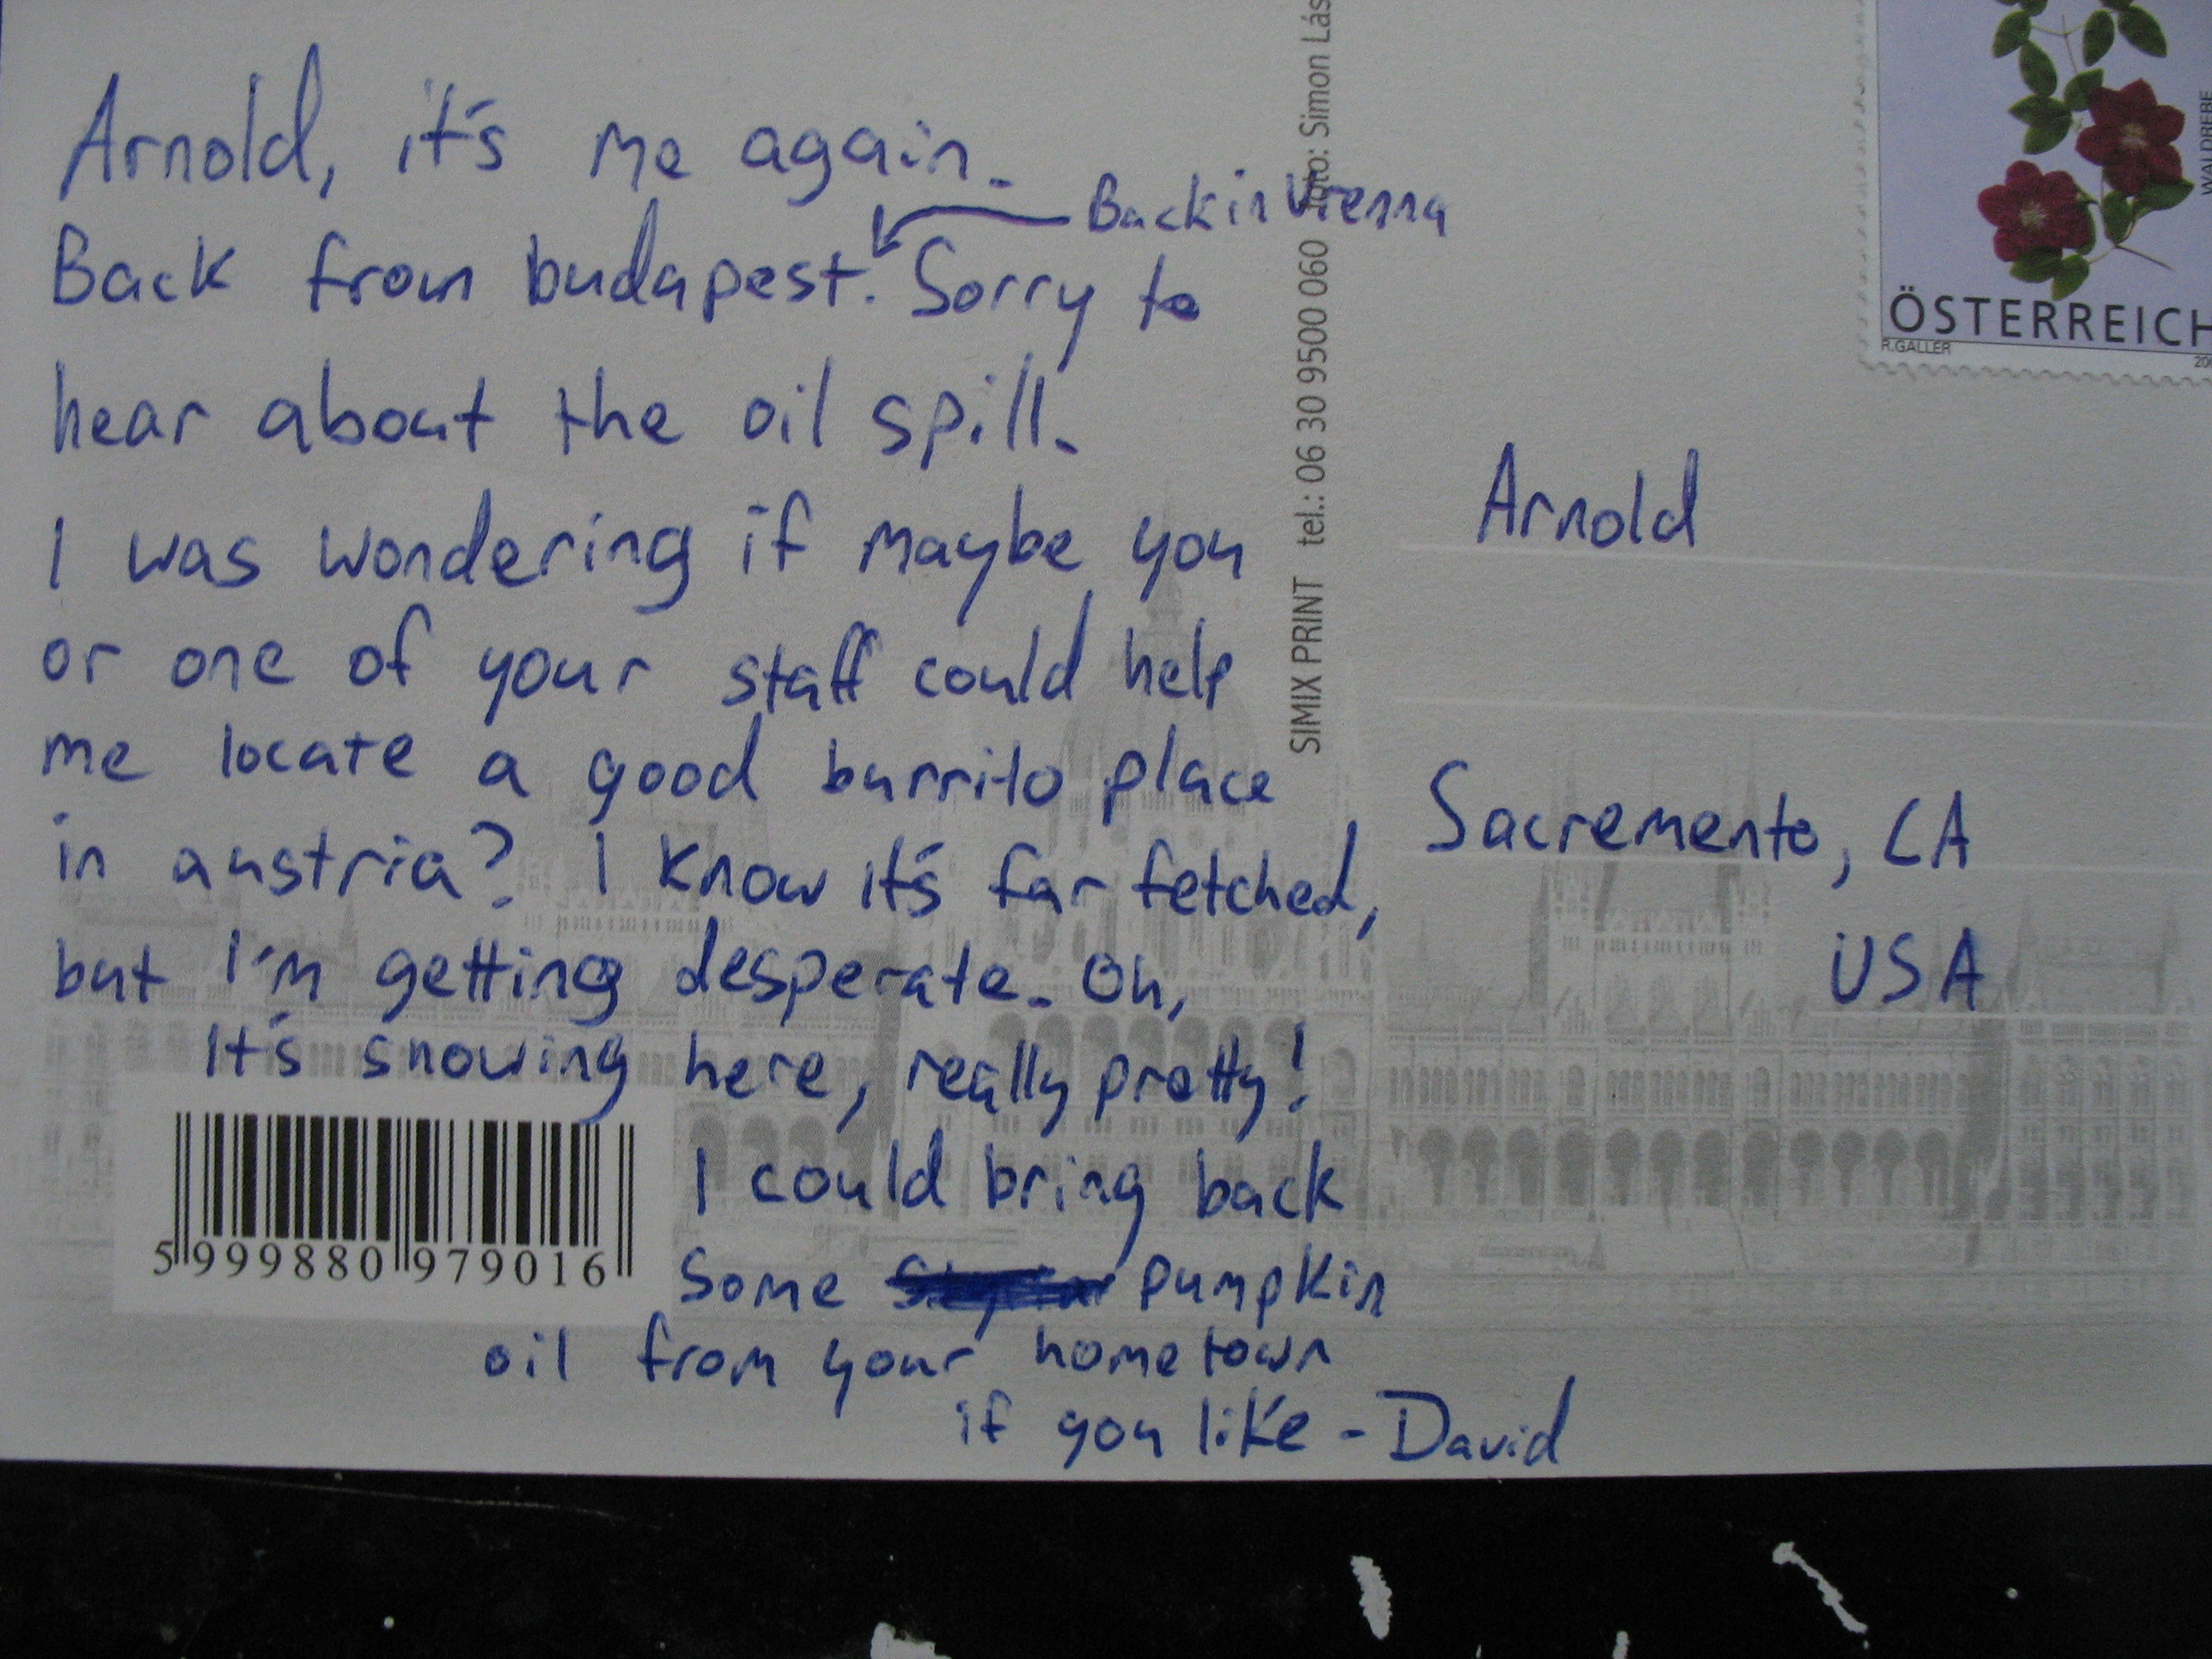 Arnold, it's me again.
Back in Vienna
Back from budapest. Sorry to
hear about the oil spill.
I was wondering if maybe you
or one of your staff could help
me locate a good burrito place
in austria? I know it's far fetched,
but I'm getting desperate. Oh,
it's snowing here, really pretty!
I could bring back
some pumpkin
oil from your hometown
if you like - David
5 999880 979016
SIMIX PRINT tel.: 06 30 9500 060 foto: Simon Lás
WALDREBE
ÖSTERREICH
R.GALLER
Arnold
Sacremento, CA
USA